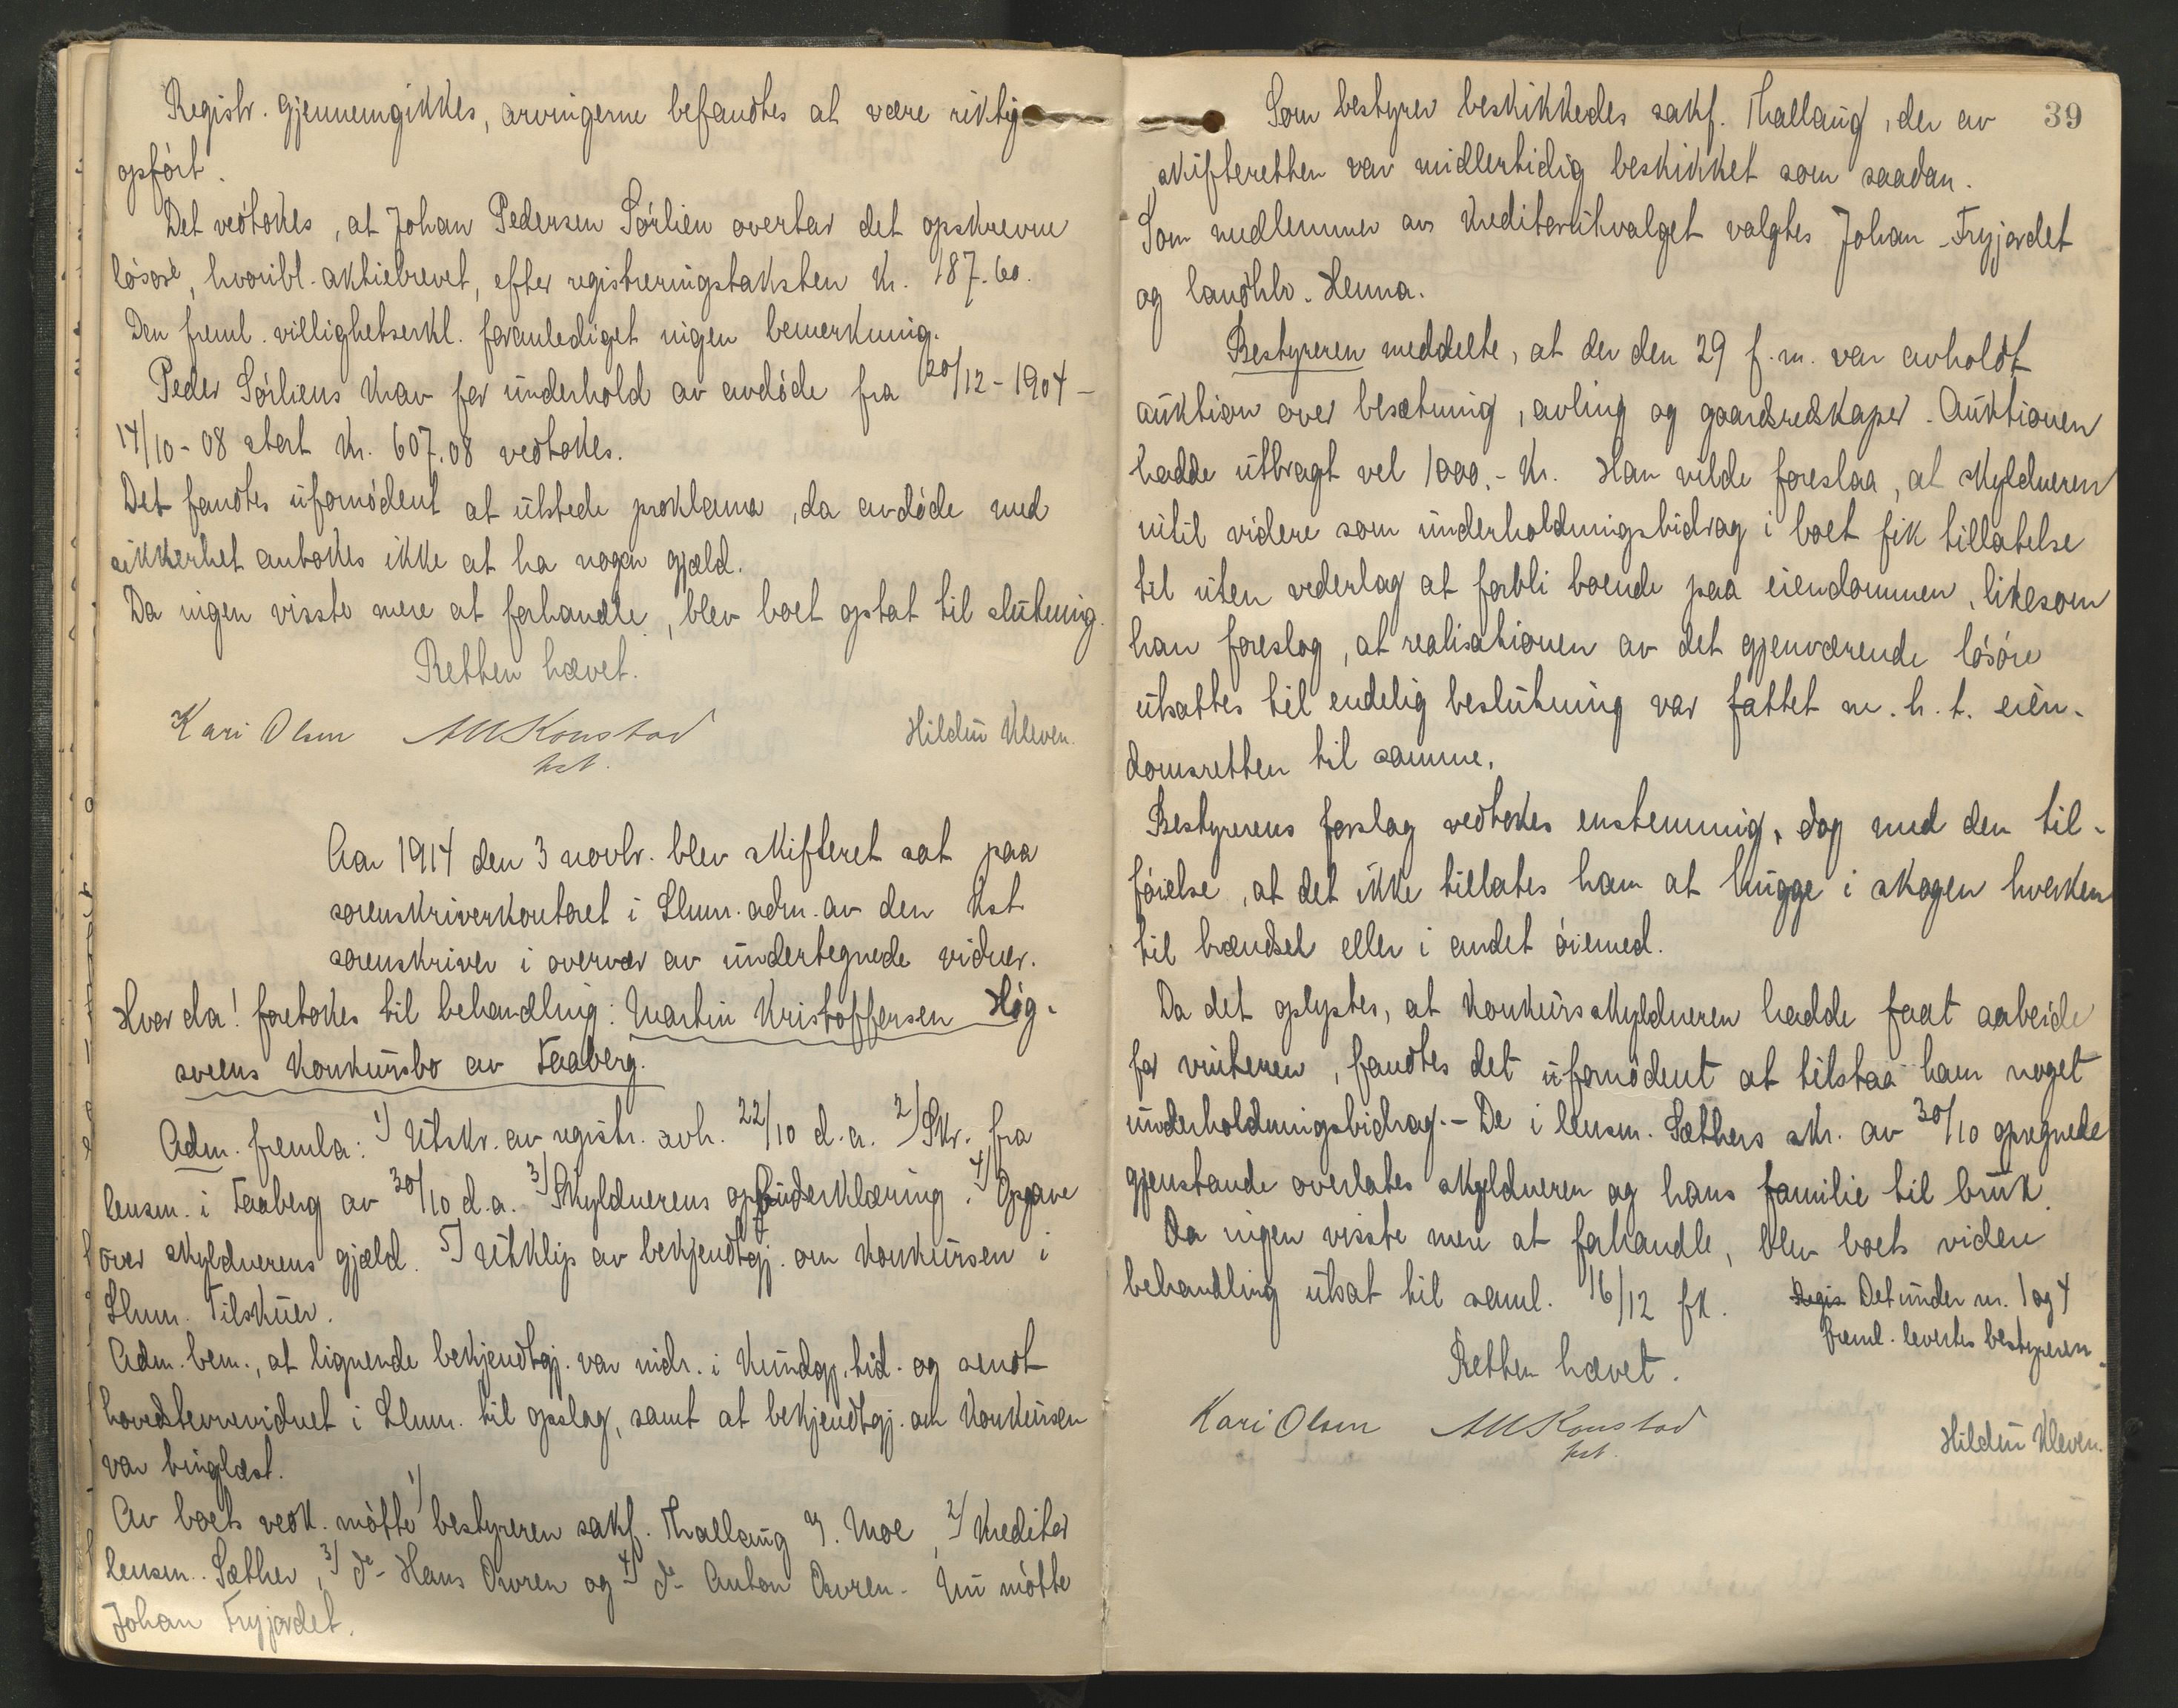 Registr. gjennemgikkes, arvingerne befandtes at være riktig
opført.
Det vedtokes, at Johan Pedersen Sørlien overtar det opskrevne
løsøre, hvoribl. aktiebrevet, efter registreringstaksten kr. 187.60.
Den freml. villighetserkl. foranlediget ingen bemerkning.
Peder Sørliens krav for underhold av avdøde fra 20/12-1904-
14/10-08 stort kr. 607.08 vedtokes.
Det fandtes ufornødent at utstede proklama, da avdøde med
sikkerhet antokes ikke at ha nogen gjæld.
Da ingen visste mere at forhandle, blev boet optat til slutning.
Retten hævet.
Kari Olsen AMKonstad Hildur Kleven.
kst.
Aar 1914 den 3 novbr. blev skifteret sat paa
sorenskriverkontoret i Lhmr. adm. av den kst.
sorenskriver i overvær av undertegnede vidner.
Hvor da! foretokes til behandling: Martin Kristoffersen Høg-
sveens konkursbo av Faaberg.
Adm. fremla: 1) Utskr. av registr. avh. 22/10 d.a. 2) Skr. fra
lensm. i Faaberg av 30/10 d.a. 3) Skyldnerens opbudserklæring. 4) Opgave
over skyldnerens gjæld. 5) Utklip av bekjendtgj. om konkursen i
Lhmr. Tilskuer.
Adm. bem., at lignende bekjendtgj. var indr. i Kundgj. tid. og sendt
hovedstevnevidnet i Lhmr. til opslag, samt at bekjendtgj. om konkursen
var tinglæst.
Av boets vedk. møtte 1) bestyreren sakf. Thallaug v. Moe, 2) kreditor
lensm. Sæther, 3) do Hans Owren og 4) do Anton Owren. Nu møtte
Johan Fryjordet.
39
Som bestyrer beskikkedes sakf. Thallaug, der av
skifteretten var midlertidig beskikket som saadan.
Som medlemmer av kreditorutvalget valgtes Johan Fryjordet
og landhlr. Henna.
Bestyreren meddelte, at der den 29 f.m. var avholdt
auktion over besætning, avling og gaardsredskaper. Auktionen
hadde utbragt vel 1000,- kr. Han vilde foreslaa, at skyldneren
intil videre som underholdningsbidrag i boet fik tillatelse
til uten vederlag at forbli boende paa eiendommen, likesom
han foreslog, at realisationen av det gjenværende løsøre
utsattes til endelig beslutning var fattet m.h.t. eien-
domsretten til samme.
Bestyrerens forslag vedtokes enstemmig, dog med den til-
føielse, at det ikke tillates ham at hugge i skogen hverken
til brændsel eller i andet øiemed.
Da det oplystes, at konkursskyldneren hadde faat arbeide
for vinteren, fandtes det ufornødent at tilstaa ham noget
underholdningsbidrag. - De i lensm. Sæthers skr. av 30/10 opregnede
gjenstande overlates skyldneren og hans familie til bruk.
Da ingen visste mere at forhandle, blev boets videre
behandling utsat til saml. 16/12 fk. Regis Det under nr. 1 og 4
freml. levertes bestyreren.
Retten hævet.
Kari Olsen AMKonstad Hildur Kleven.
kst.